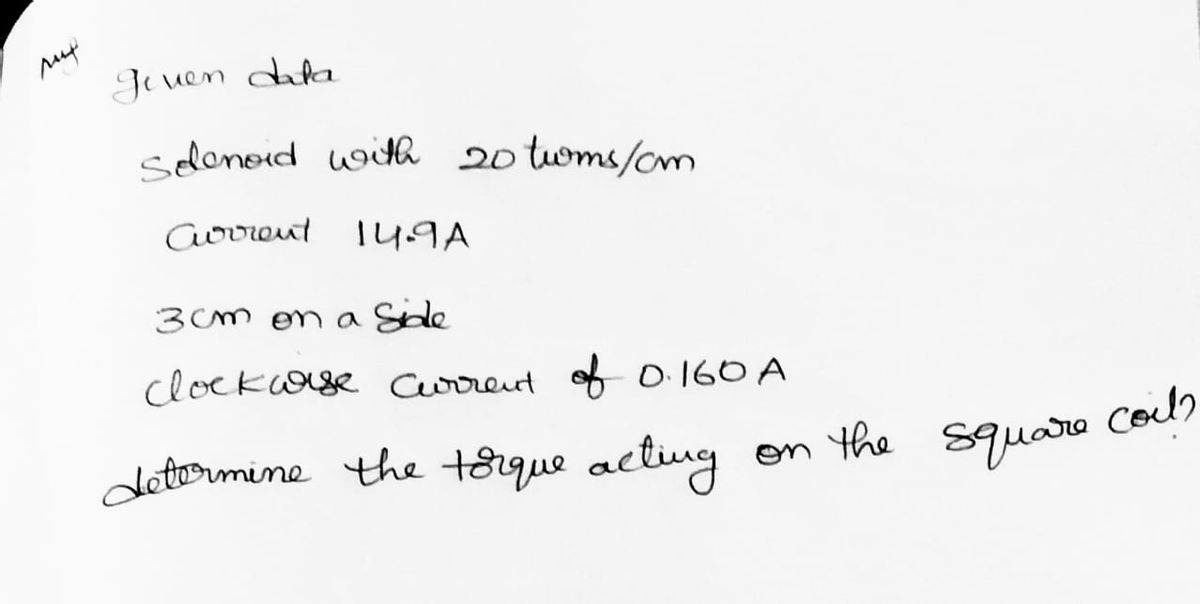 given data
Solenoid with 20 turns/cm
Current 14.9A
3cm on a Side
clockwise current of 0.160 A
determine the torque acting on the square coil?